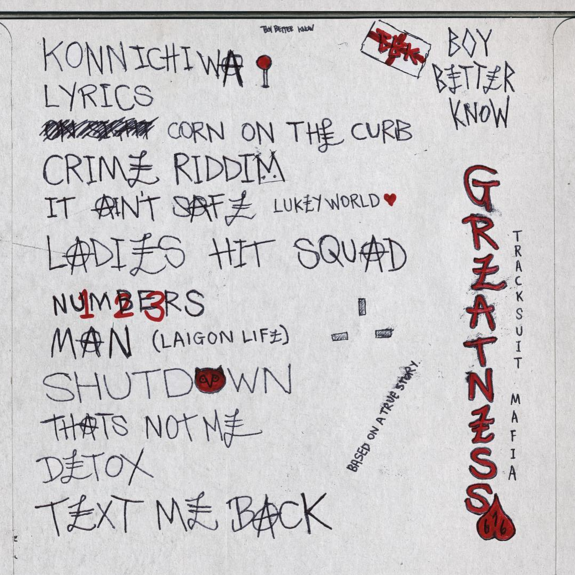 BOY BETTER KNOW
KONNICHIWA
LYRICS
CORN ON THE CURB
CRIME RIDDIM
IT AIN'T SAFE LUKEYWORLD
LADIES HIT SQUAD
NUMBERS
123
MAN (LAIGON LIFE)
SHUTDOWN
THATS NOT ME
DETOX
TEXT ME BACK
BOY
BETTER
KNOW
GREATNESS
TRACKSUIT MAFIA
BASED ON A TRUE STORY.